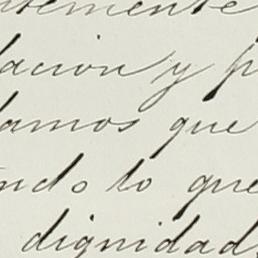 ntemente
lacion y p
lamos que
ndo lo que
dignidad,